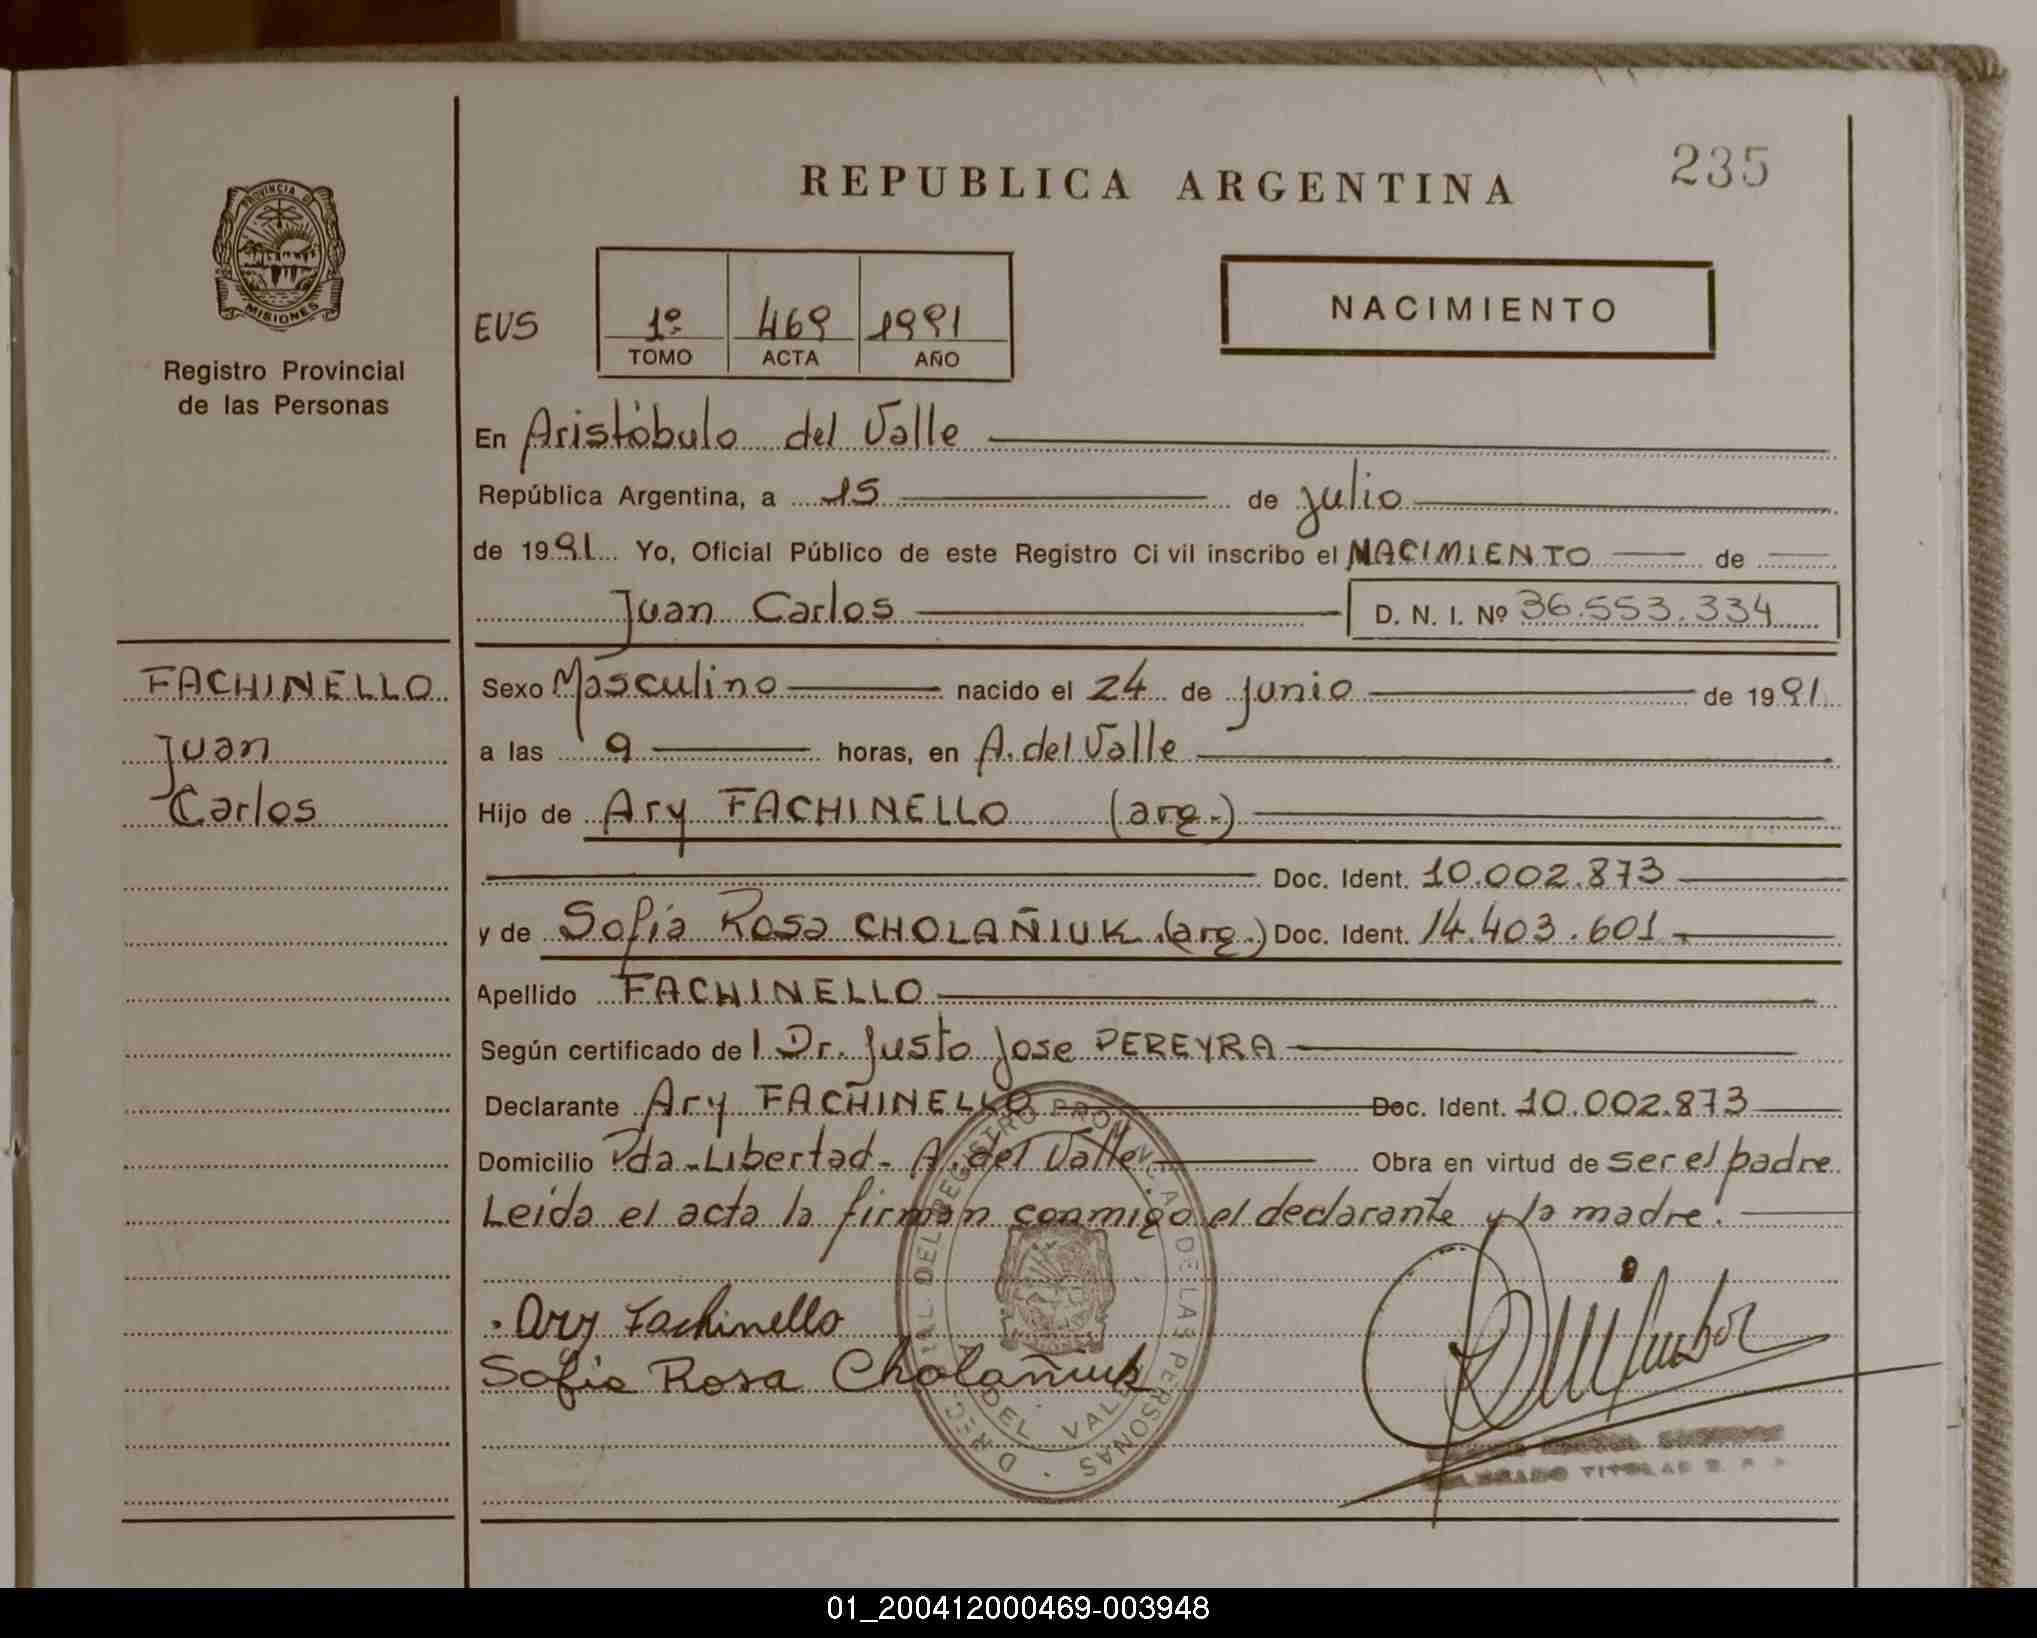 235
REPUBLICA ARGENTINA
PROVINCIA DE
MISIONES
Registro Provincial
de las Personas
EVS
1º 469 1991
TOMO ACTA AÑO
NACIMIENTO
En Aristóbulo del Valle
República Argentina, a 15 de julio
de 1991 Yo, Oficial Público de este Registro Ci vil inscribo el NACIMIENTO de
Juan Carlos D. N. I. Nº 36.553.334
FACHINELLO
Juan
Carlos
Sexo Masculino nacido el 24 de junio de 1991
a las 9 horas, en A. del Valle
Hijo de Ary FACHINELLO (arg.)
Doc. Ident. 10.002.873
y de Sofía Rosa CHOLAÑIUK (arg.) Doc. Ident. 14.403.601
Apellido FACHINELLO
Según certificado de l Dr. Justo Jose PEREYRA
Declarante Ary FACHINELLO Doc. Ident. 10.002.873
Domicilio Pda-Libertad- A. del Valle Obra en virtud de ser el padre
Leída el acta la firman conmigo el declarante y la madre.
Ary Fachinello
Sofia Rosa Cholañiuk
REGISTRO PROVINCIAL DE LAS PERSONAS
DEL VALLE
TITULAR
01_200412000469-003948